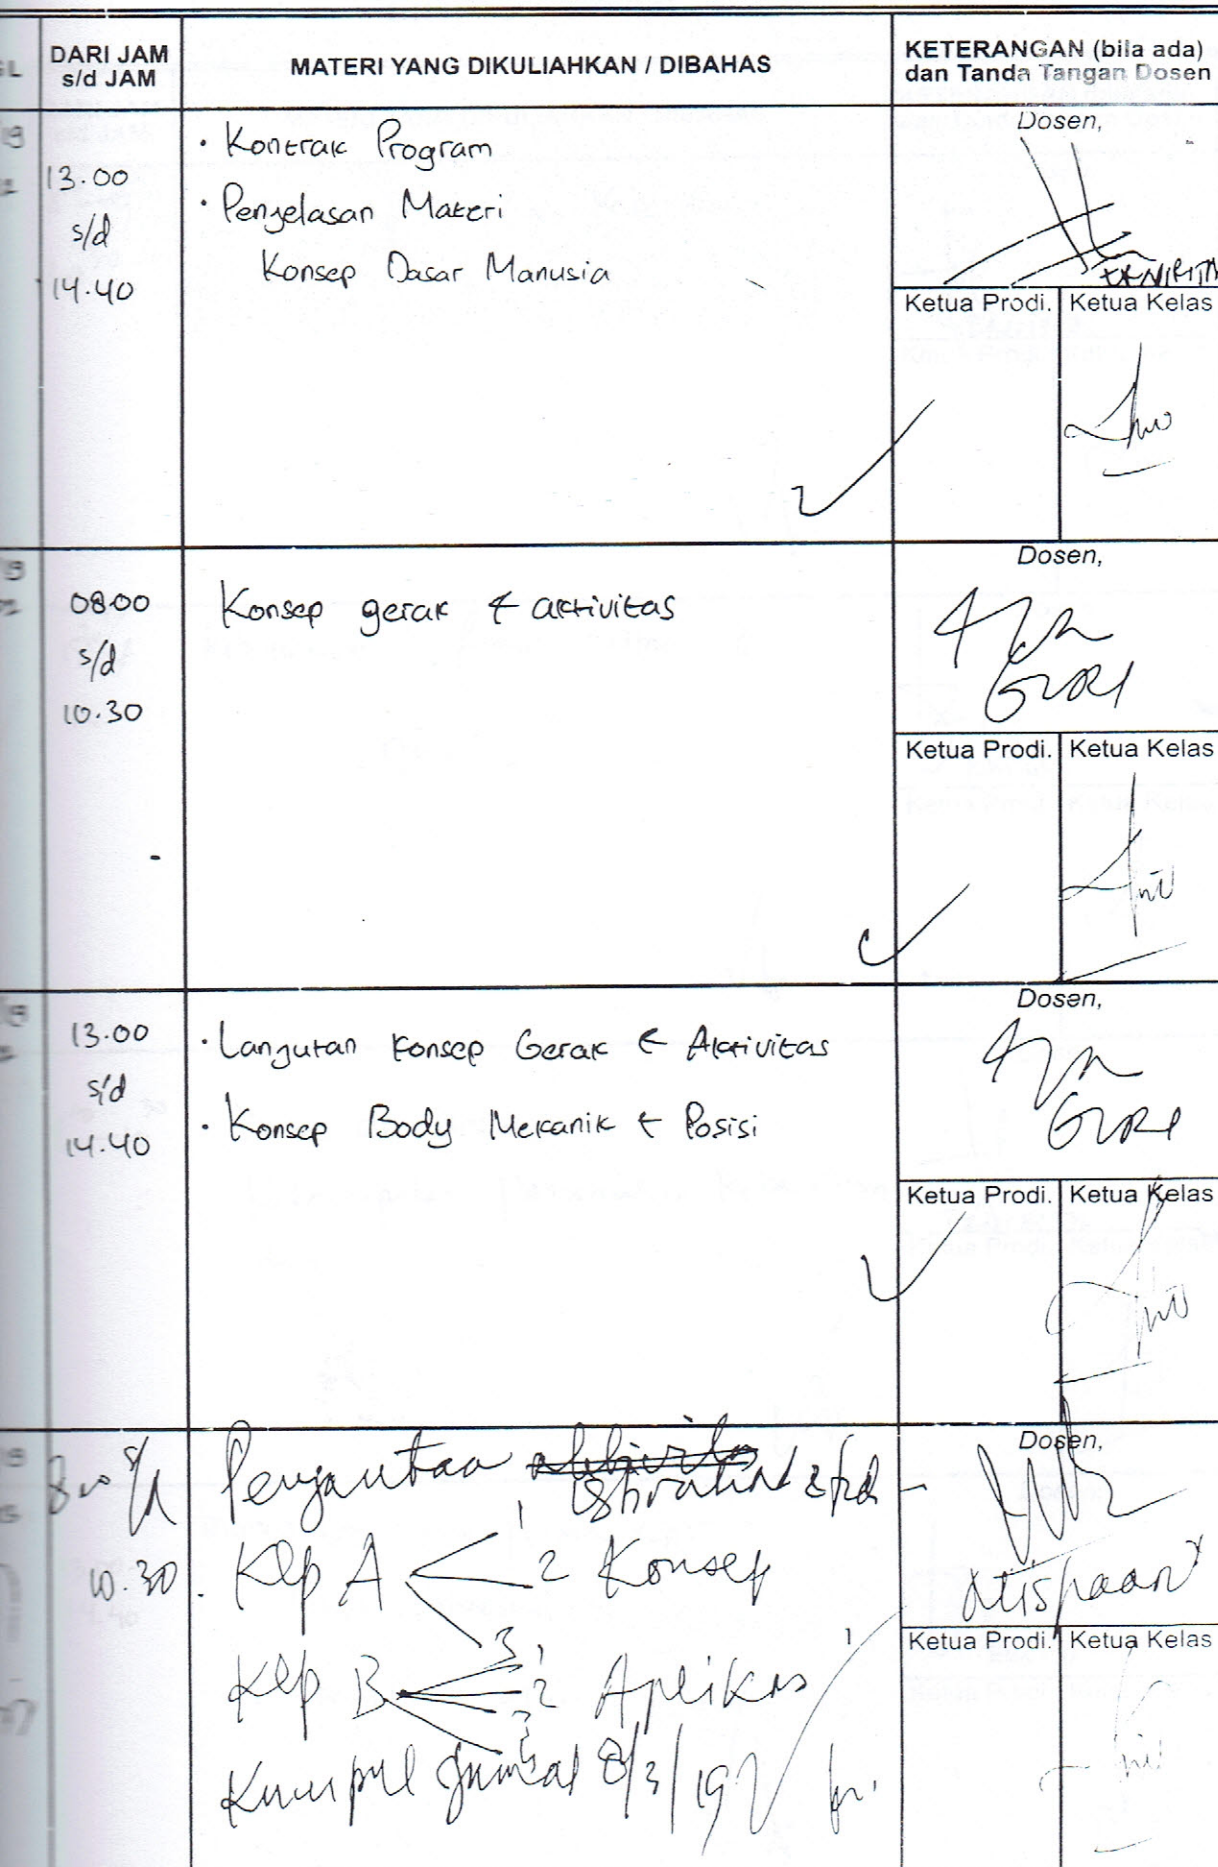 GL
DARI JAM
s/d JAM
MATERI YANG DIKULIAHKAN / DIBAHAS
KETERANGAN (bila ada)
dan Tanda Tangan Dosen
19
13.00
s/d
14.40
• Kontrak Program
• Penjelasan Materi
Konsep Dasar Manusia
Dosen,
Ketua Prodi.
Ketua Kelas
19
08.00
s/d
10.30
Konsep gerak & aktivitas
Dosen,
Ketua Prodi.
Ketua Kelas
19
13.00
s/d
14.40
• Lanjutan Konsep Gerak & Aktivitas
• Konsep Body Mekanik & Posisi
Dosen,
Ketua Prodi.
Ketua Kelas
19
8.00 s/d
10.30
Klp A 1 2 3 Konsep
Klp B 1 2 3 Aplikas
Kumpul Jurnal 8/3/19
Dosen,
Ketua Prodi.
Ketua Kelas